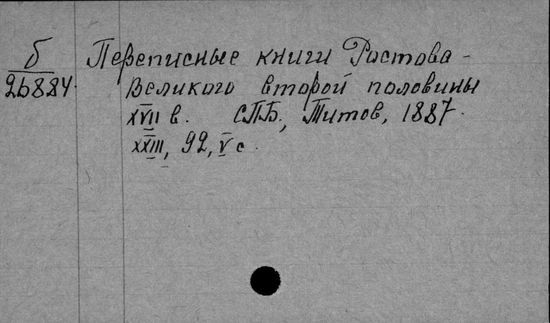 б
26884.
Переписные книги Ростова-
Великого второй половины
XVII в. СПБ., Титов, 1887.
XXIII, 92, V с.